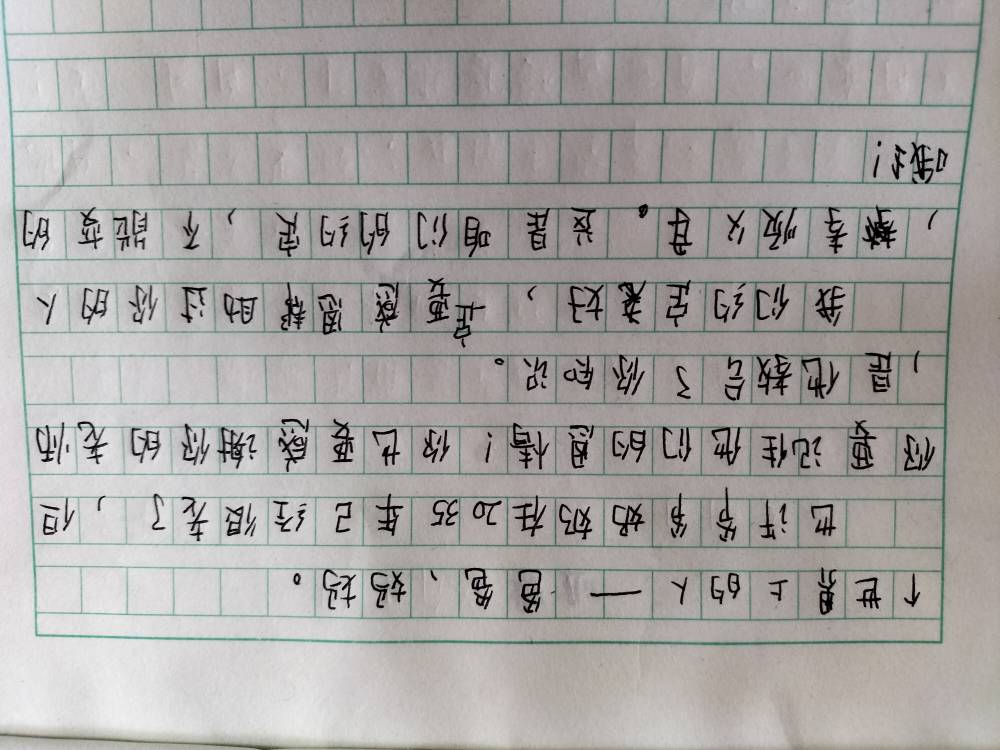 个世界上的人——爸爸、妈妈。
也许爷爷奶奶在2035年已经很老了，但
你要记住他们的恩情！你也要感谢你的老师
，是他教会了你知识。
我们约定好，一定要感恩帮助过你的人
，孝顺父母。这是咱们的约定，不能变的
哦！